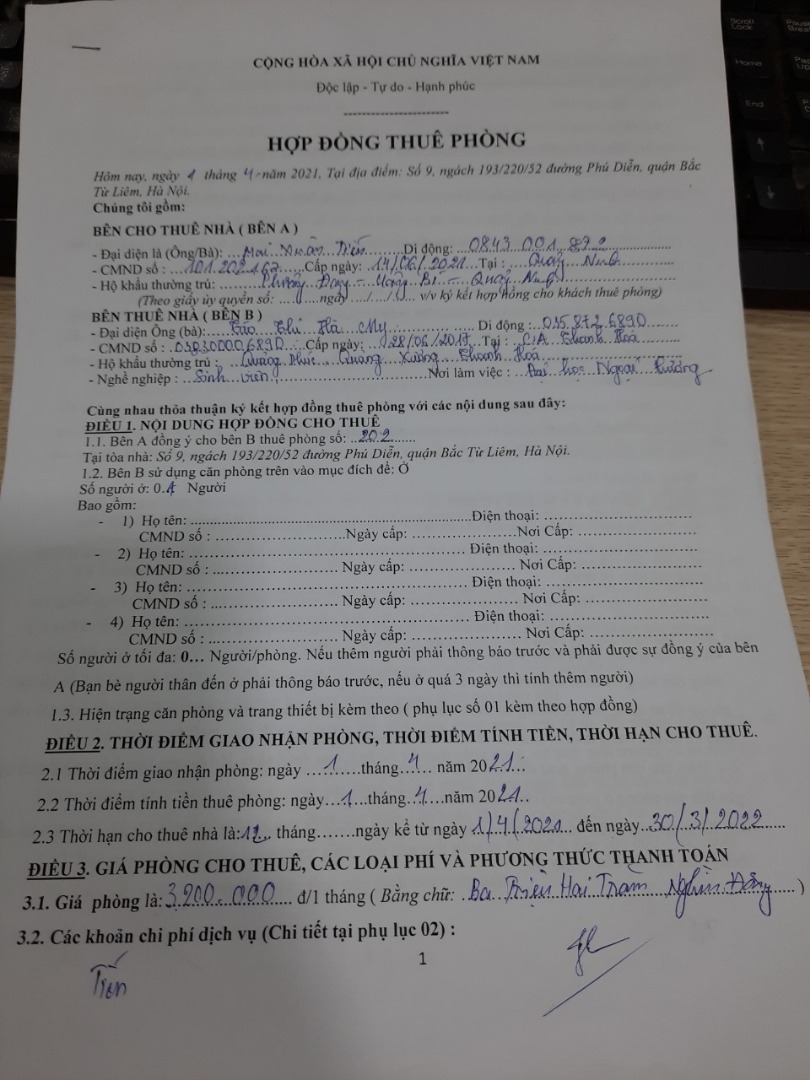 CỘNG HÒA XÃ HỘI CHỦ NGHĨA VIỆT NAM
Độc lập - Tự do - Hạnh phúc
HỢP ĐỒNG THUÊ PHÒNG
Hôm nay, ngày 1 tháng 4 năm 2021, Tại địa điểm: Số 9, ngách 193/220/52 đường Phú Diễn, quận Bắc
Từ Liêm, Hà Nội.
Chúng tôi gồm:
BÊN CHO THUÊ NHÀ ( BÊN A )
- Đại diện là (Ông/Bà): ...Mai Xuân Tiến......Di động: ...0843 001 872......
- CMND số : ...101 202 167......Cấp ngày: ...14/06/2021...Tại : ...Quảng Ninh......
- Hộ khẩu thường trú: ...Phương Đông - Uông Bí - Quảng Ninh......
(Theo giấy ủy quyền số: .........ngày ..../..../.... v/v ký kết hợp đồng cho khách thuê phòng)
BÊN THUÊ NHÀ ( BÊN B )
- Đại diện Ông (bà):...Thị Hà My...... Di động :...035.872.6890......
- CMND số : 038300006890...Cấp ngày: ...28/06/2017...Tại : ...C/A Thanh Hoá......
- Hộ khẩu thường trú : ...Quảng Xương Thanh Hoá......
- Nghề nghiệp : ...Sinh viên......Nơi làm việc : ...Đại học Ngoại Thương
Cùng nhau thỏa thuận ký kết hợp đồng thuê phòng với các nội dung sau đây:
ĐIỀU 1. NỘI DUNG HỢP ĐỒNG CHO THUÊ
1.1. Bên A đồng ý cho bên B thuê phòng số: ..202......
Tại tòa nhà: Số 9, ngách 193/220/52 đường Phú Diễn, quận Bắc Từ Liêm, Hà Nội.
1.2. Bên B sử dụng căn phòng trên vào mục đích để: Ở
Số người ở: 0.1 Người
Bao gồm:
- 1) Họ tên: ............Điện thoại: ............
CMND số : ............Ngày cấp: ............Nơi Cấp: ............
- 2) Họ tên: ............ Điện thoại: ............
CMND số : ............ Ngày cấp: ............ Nơi Cấp: ............
- 3) Họ tên: ............ Điện thoại: ............
CMND số : ............ Ngày cấp: ............ Nơi Cấp: ............
- 4) Họ tên: ............ Điện thoại: ............
CMND số : ............ Ngày cấp: ............ Nơi Cấp: ............
Số người ở tối đa: 0... Người/phòng. Nếu thêm người phải thông báo trước và phải được sự đồng ý của bên
A (Bạn bè người thân đến ở phải thông báo trước, nếu ở quá 3 ngày thì tính thêm người)
1.3. Hiện trạng căn phòng và trang thiết bị kèm theo ( phụ lục số 01 kèm theo hợp đồng)
ĐIỀU 2. THỜI ĐIỂM GIAO NHẬN PHÒNG, THỜI ĐIỂM TÍNH TIỀN, THỜI HẠN CHO THUÊ.
2.1 Thời điểm giao nhận phòng: ngày ...1......tháng..4... năm 2021...
2.2 Thời điểm tính tiền thuê phòng: ngày...1...tháng...4...năm 2021..
2.3 Thời hạn cho thuê nhà là:12.. tháng.......ngày kể từ ngày 1/4/2021.. đến ngày..30/3/2022......
ĐIỀU 3. GIÁ PHÒNG CHO THUÊ, CÁC LOẠI PHÍ VÀ PHƯƠNG THỨC THANH TOÁN
3.1. Giá phòng là:3.200.000... đ/1 tháng ( Bằng chữ: .Ba Triệu Hai Trăm Nghìn Đồng......)
3.2. Các khoản chi phí dịch vụ (Chi tiết tại phụ lục 02) :
1
Tiến